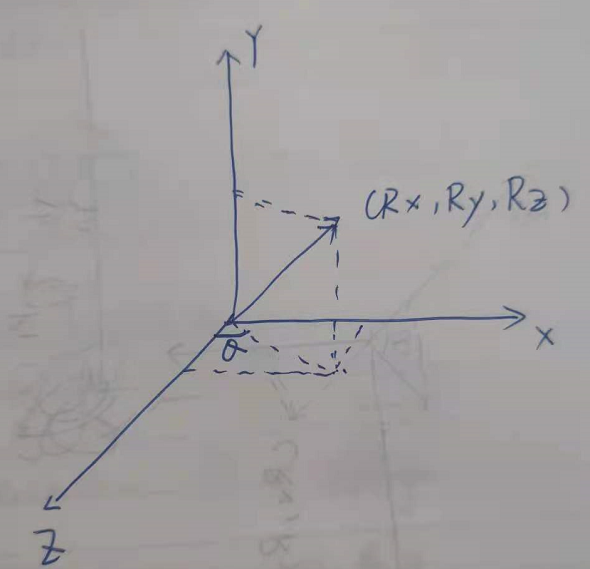 Y
(Rx, Ry, Rz)
X
θ
Z